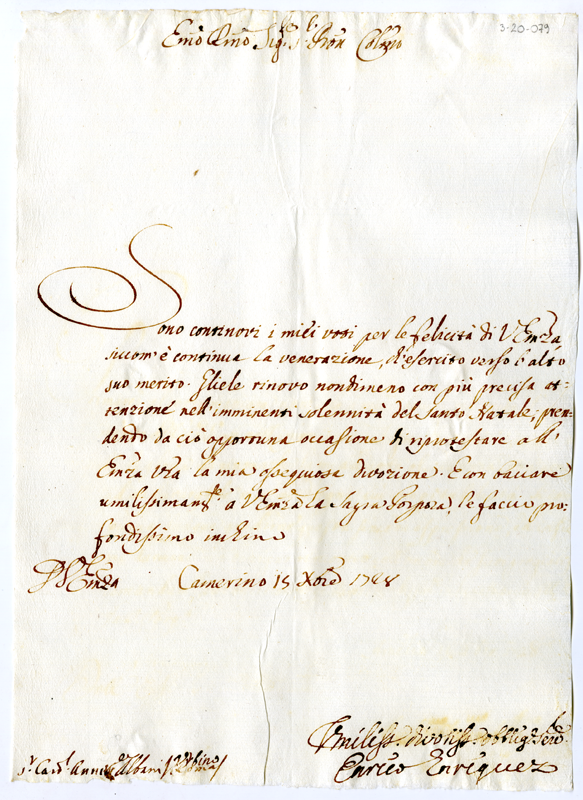 3-20-079
Emõ Rmõ Sig.re P.ron Col.mo
Sono continovi i miei voti per le felicità di V Emza,
siccom' è continua la venerazione, ch'esercito verso l'alto
suo merito. Gliele rinovo nondimeno con più precisa at=
tenzione nell'imminenti solennità del Santo Natale, pren=
dendo da ciò opportuna occasione di riprotestare all'
Emza Vra la mia ossequiosa divozione. E con baciare
umilissimam.te a V Emza la Sagra Porpora, le faccio pro=
fondissimo inchino
Di V Emza Camerino 15 Xbre 1728
Umiliss. divotiss. obblig. ser.
Enrico Enriquez
S.r Card. Annib.e Albani / Urbino /